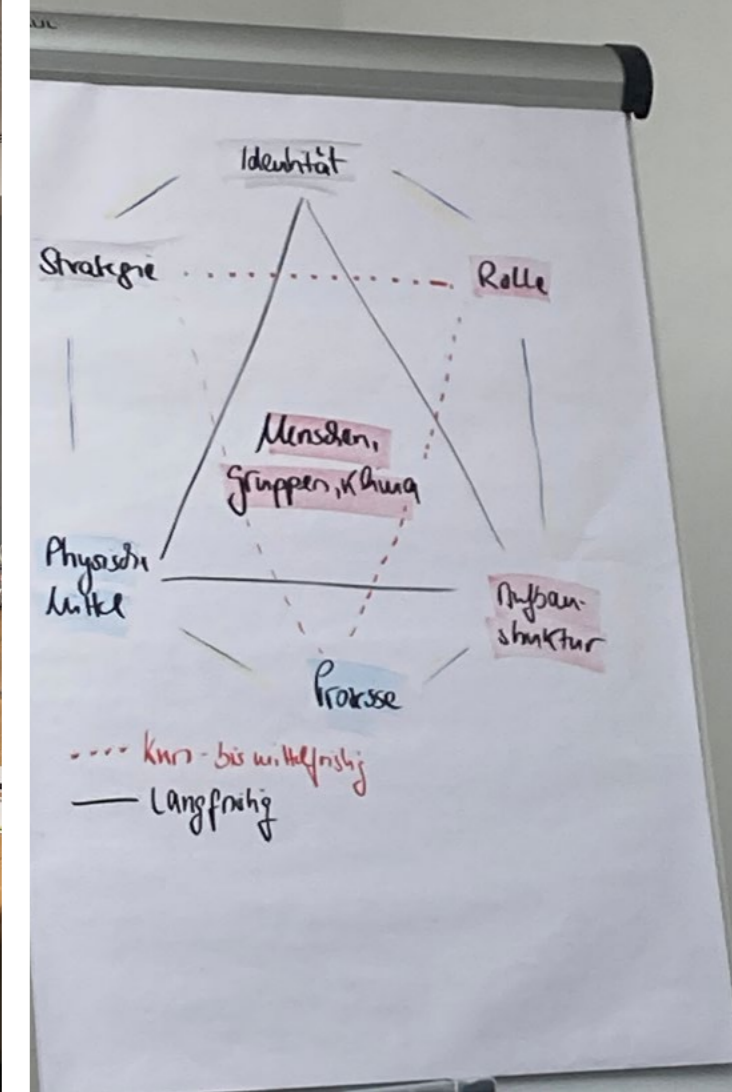 Identität
Strategie
Rolle
Menschen,
Gruppen, Klima
Physische
Mittel
Aufbau-
struktur
Prozesse
Kurz- bis mittelfristig
Langfristig